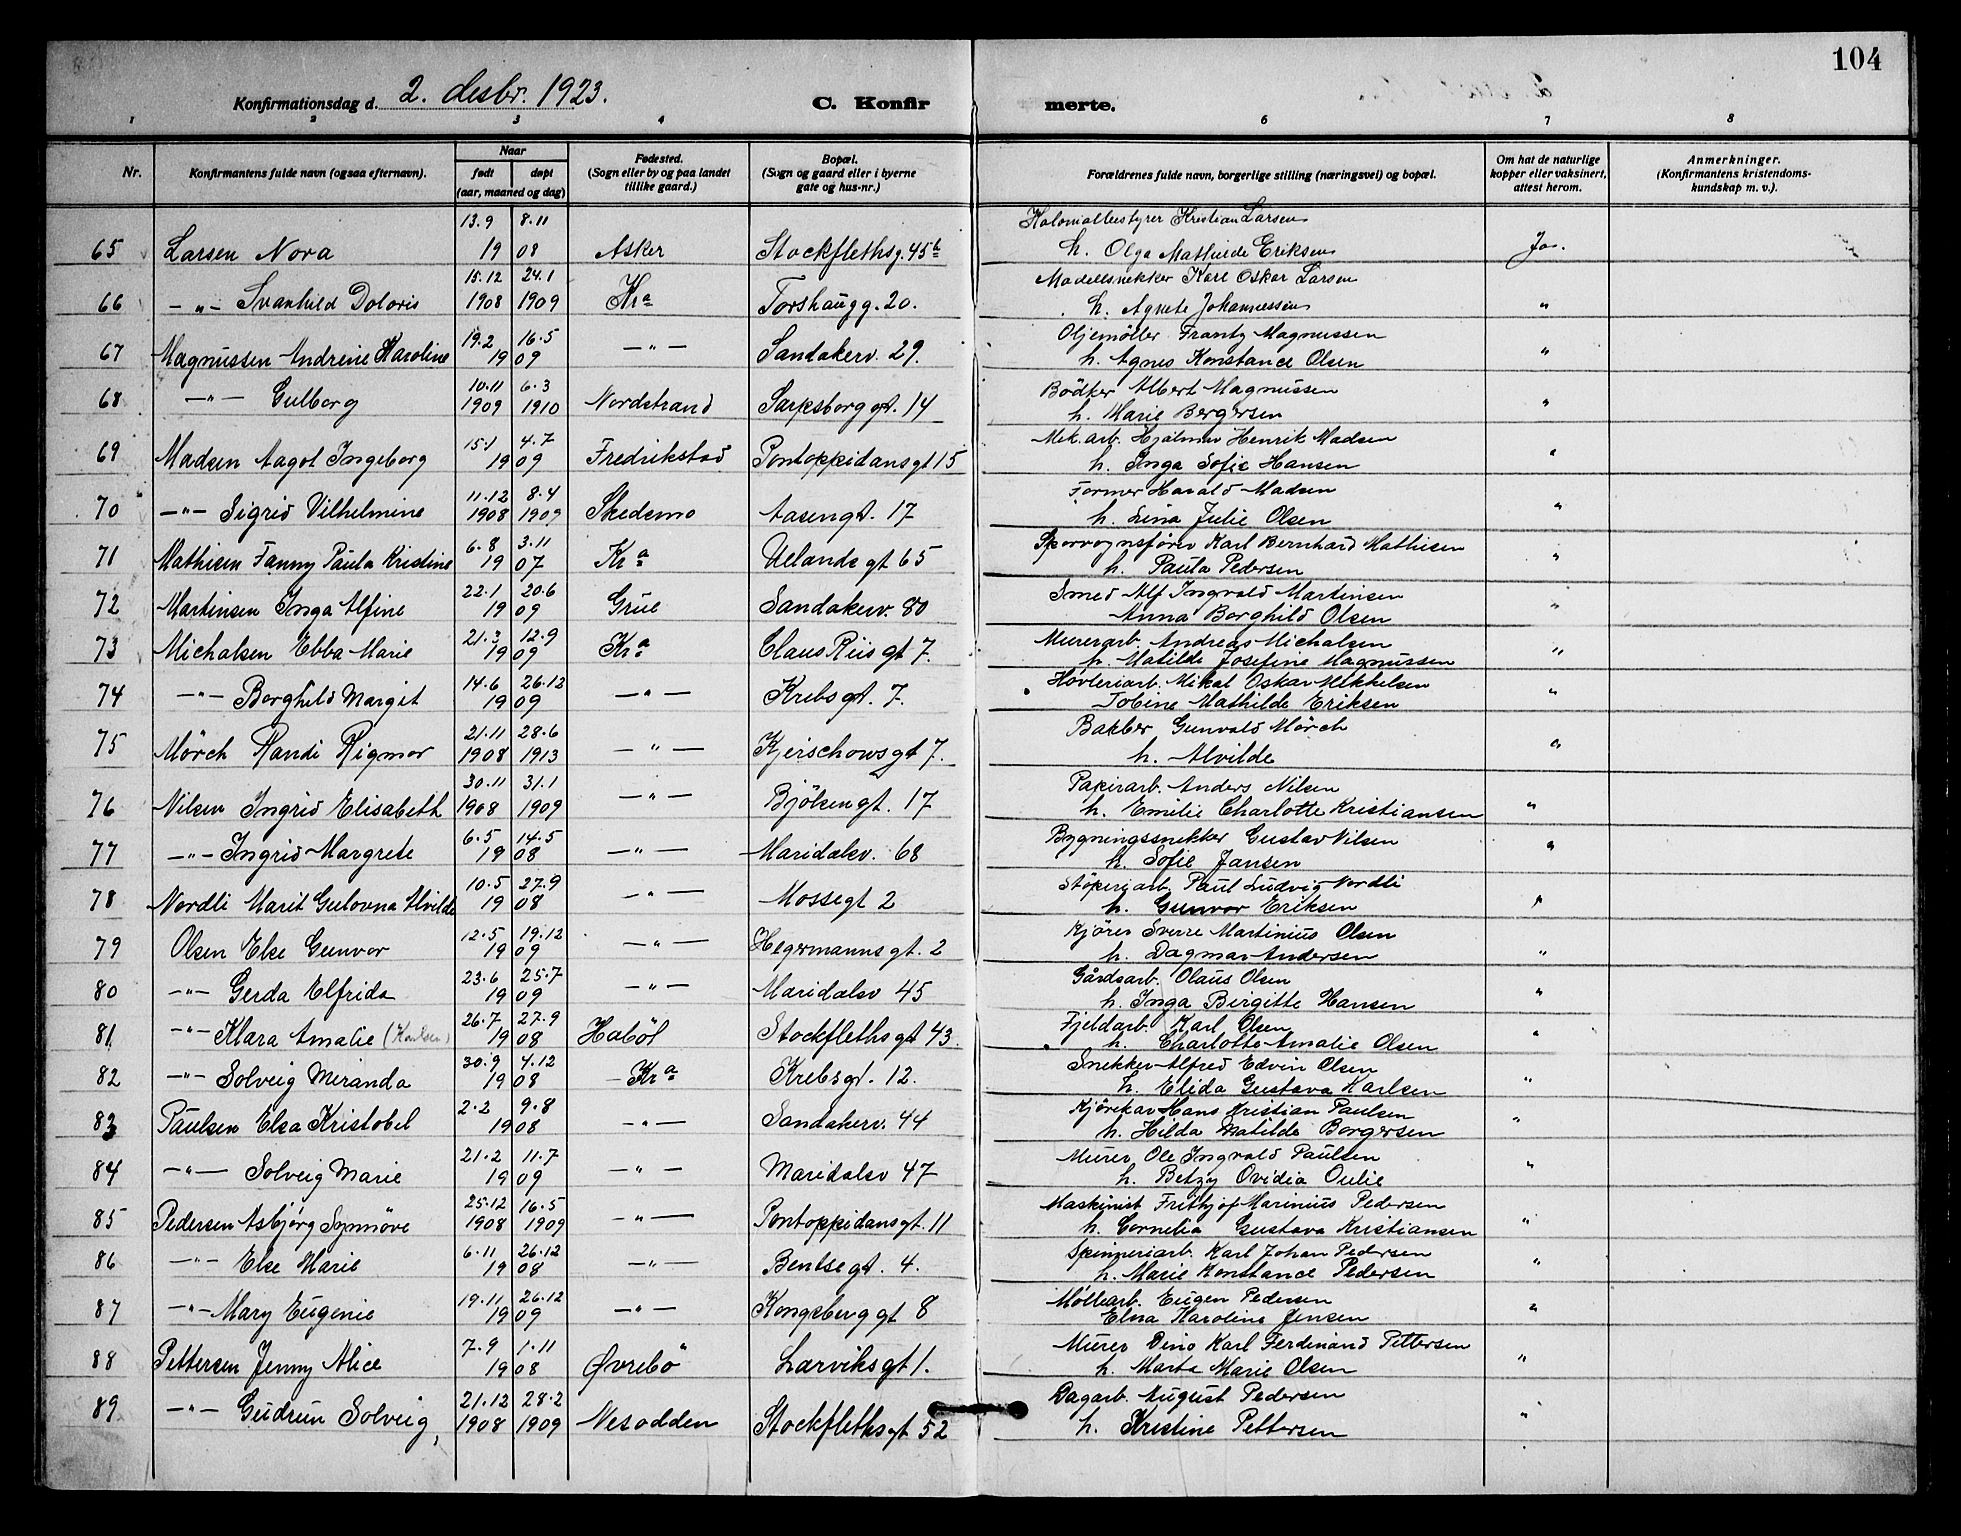 104
Konfirmationsdag d. 2. desbr. 1923. C. Konfir merte.
1 2 3 4 6 7 8
Nr. Konfirmantens fulde navn (ogsaa efternavn). Naar født døpt (aar, maaned og dag) Fødested. (Sogn eller by og paa landet tillike gaard.) Bopæl. (Sogn og gaard eller i byerne gate og hus-nr.) Forældrenes fulde navn, borgerlige stilling (næringsvei) og bopæl. Om hat de naturlige kopper eller vaksinert, attest herom. Anmerkninger. (Konfirmantens kristendoms-kundskap m. v.).
13.9 8.11 Kolonialbestyrer Kristian Larsen
65 Larsen Nora 19 08 Asker Stockflethsg. 45b h. Olga Mathilde Eriksen Ja.
15.12 24.1 Modellsnekker Karl Oskar Larsen
66 -"- Svanhild Doloris 1908 1909 Kra Torshaugg. 20. h. Agnete Johannessen "
19.2 16.5 Oljemöller Frantz Magnussen
67 Magnussen Andrine Karoline 19 09 -"- Sandakerv. 29. h. Agnes Konstance Olsen "
10.11 6.3 Bödker Albert Magnussen
68 -"- Gulborg 1909 1910 Nordstrand Sarpsborg gt. 14 h. Marie Bergersen "
15.1 4.7 Mek. arb. Hjalmar Henrik Madsen
69 Madsen Aagot Ingeborg 19 09 Fredrikstad Pontoppidansgt 15 h. Inga Sofie Hansen "
11.12 8.4 Former Harald Madsen
70 -"- Sigrid Vilhelmine 1908 1909 Skedsmo Aasengt. 17 h. Lina Julie Olsen "
6.8 3.11 Sporvognsfører Karl Bernhard Mathisen
71 Mathisen Fanny Paula Kristine 19 07 Kra Uelands gt 65 h. Paula Pedersen "
22.1 20.6 Smed Alf Ingvald Martinsen
72 Martinsen Inga Alfine 19 09 Grue Sandakerv. 80 Anna Borghild Olsen "
21.3 12.9 Murerarb. Andreas Michalsen
73 Michalsen Ebba Marie 19 09 Kra Claus Riis gt 7. h. Matilde Josefine Magnussen "
14.6 26.12 Høvleriarb. Mikal Oskar Mikkelsen
74 -"- Borghild Margit 19 09 -"- Krebsgt. 7. Tobine Mathilde Eriksen "
21.11 28.6 Gunvald Mörch
75 Mörch Randi Rigmor 1908 1913 -"- Kjerschowsgt 7. h. Alvilde "
30.11 31.1 Papirarb. Anders Nilsen
76 Nilsen Ingrid Elisabeth 1908 1909 -"- Bjölsengt. 17 h. Emilie Charlotte Kristiansen "
6.5 14.5 Bygningssnekker Gustav Nilsen
77 -"- Ingrid Margrete 19 08 -"- Maridalsv. 68 h. Sofie Jansen "
10.5 27.9 Støperiarb. Paul Ludvig Nordli
78 Nordli Marit Gulovna Alvilde 19 08 -"- Mossegt 2 h. Gunvor Eriksen "
12.5 19.12 Kjører Sverre Martinius Olsen
79 Olsen Else Gunvor 19 09 -"- Hegermannsgt. 2 h. Dagmar Andersen "
23.6 25.7 Gårdsarb. Olaus Olsen
80 -"- Gerda Elfrida 19 09 -"- Maridalsv 45 h. Inga Birgitte Hansen "
26.7 27.9 Fjeldarb. Karl Olsen
81 -"- Klara Amalie (Karlsen) 19 08 Haböl Stockflethsgt 43. h. Charlotte Amalie Olsen "
30.9 4.12 Snekker Alfred Edvin Olsen
82 -"- Solveig Miranda 19 08 Kra Krebsgt. 12. h. Elida Gustava Karlsen "
2.2 9.8 Kjørekar Hans Kristian Paulsen
83 Paulsen Elsa Kristobel 19 08 -"- Sandakerv. 44 h. Hilda Matilde Borgersen "
21.2 11.7 Murer Ole Ingvald Paulsen
84 -"- Solveig Marie 19 09 -"- Maridalsv 47 h. Betzy Ovidia Oulie "
25.12 16.5 Maskinist Frithjof Marinius Pedersen
85 Pedersen Asbjörg Synnöve 1908 1909 -"- Pontoppidansgt. 11 h. Cornelia Gustava Kristiansen "
6.11 26.12 Spinneriarb. Karl Johan Pedersen
86 -"- Else Marie 19 08 -"- Bentsegt. 4. h. Marie Konstance Pedersen "
19.11 26.12 Møllearb. Eugen Pedersen
87 -"- Mary Eugenie 19 09 -"- Kongsberg gt 8 Elna Karoline Jensen "
7.9 1.11 Murer Dino Karl Ferdinand Pettersen
88 Pettersen Jenny Alice 19 08 Øvrebö Larviksgt 1. h. Marta Marie Olsen "
21.12 28.2 Dagarb. August Pedersen
89 -"- Gudrun Solveig, 1908 1909 Nesodden Stockflethsgt 52 h. Kristine Pettersen "